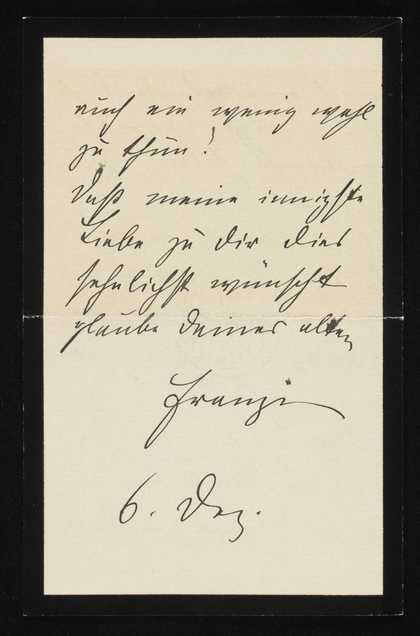 auch ein wenig wohl
zu thun!
Daß meine innigste
Liebe zu Dir dies
sehnlichst wünscht
glaube Deiner alten
Franzi
6. Dez.